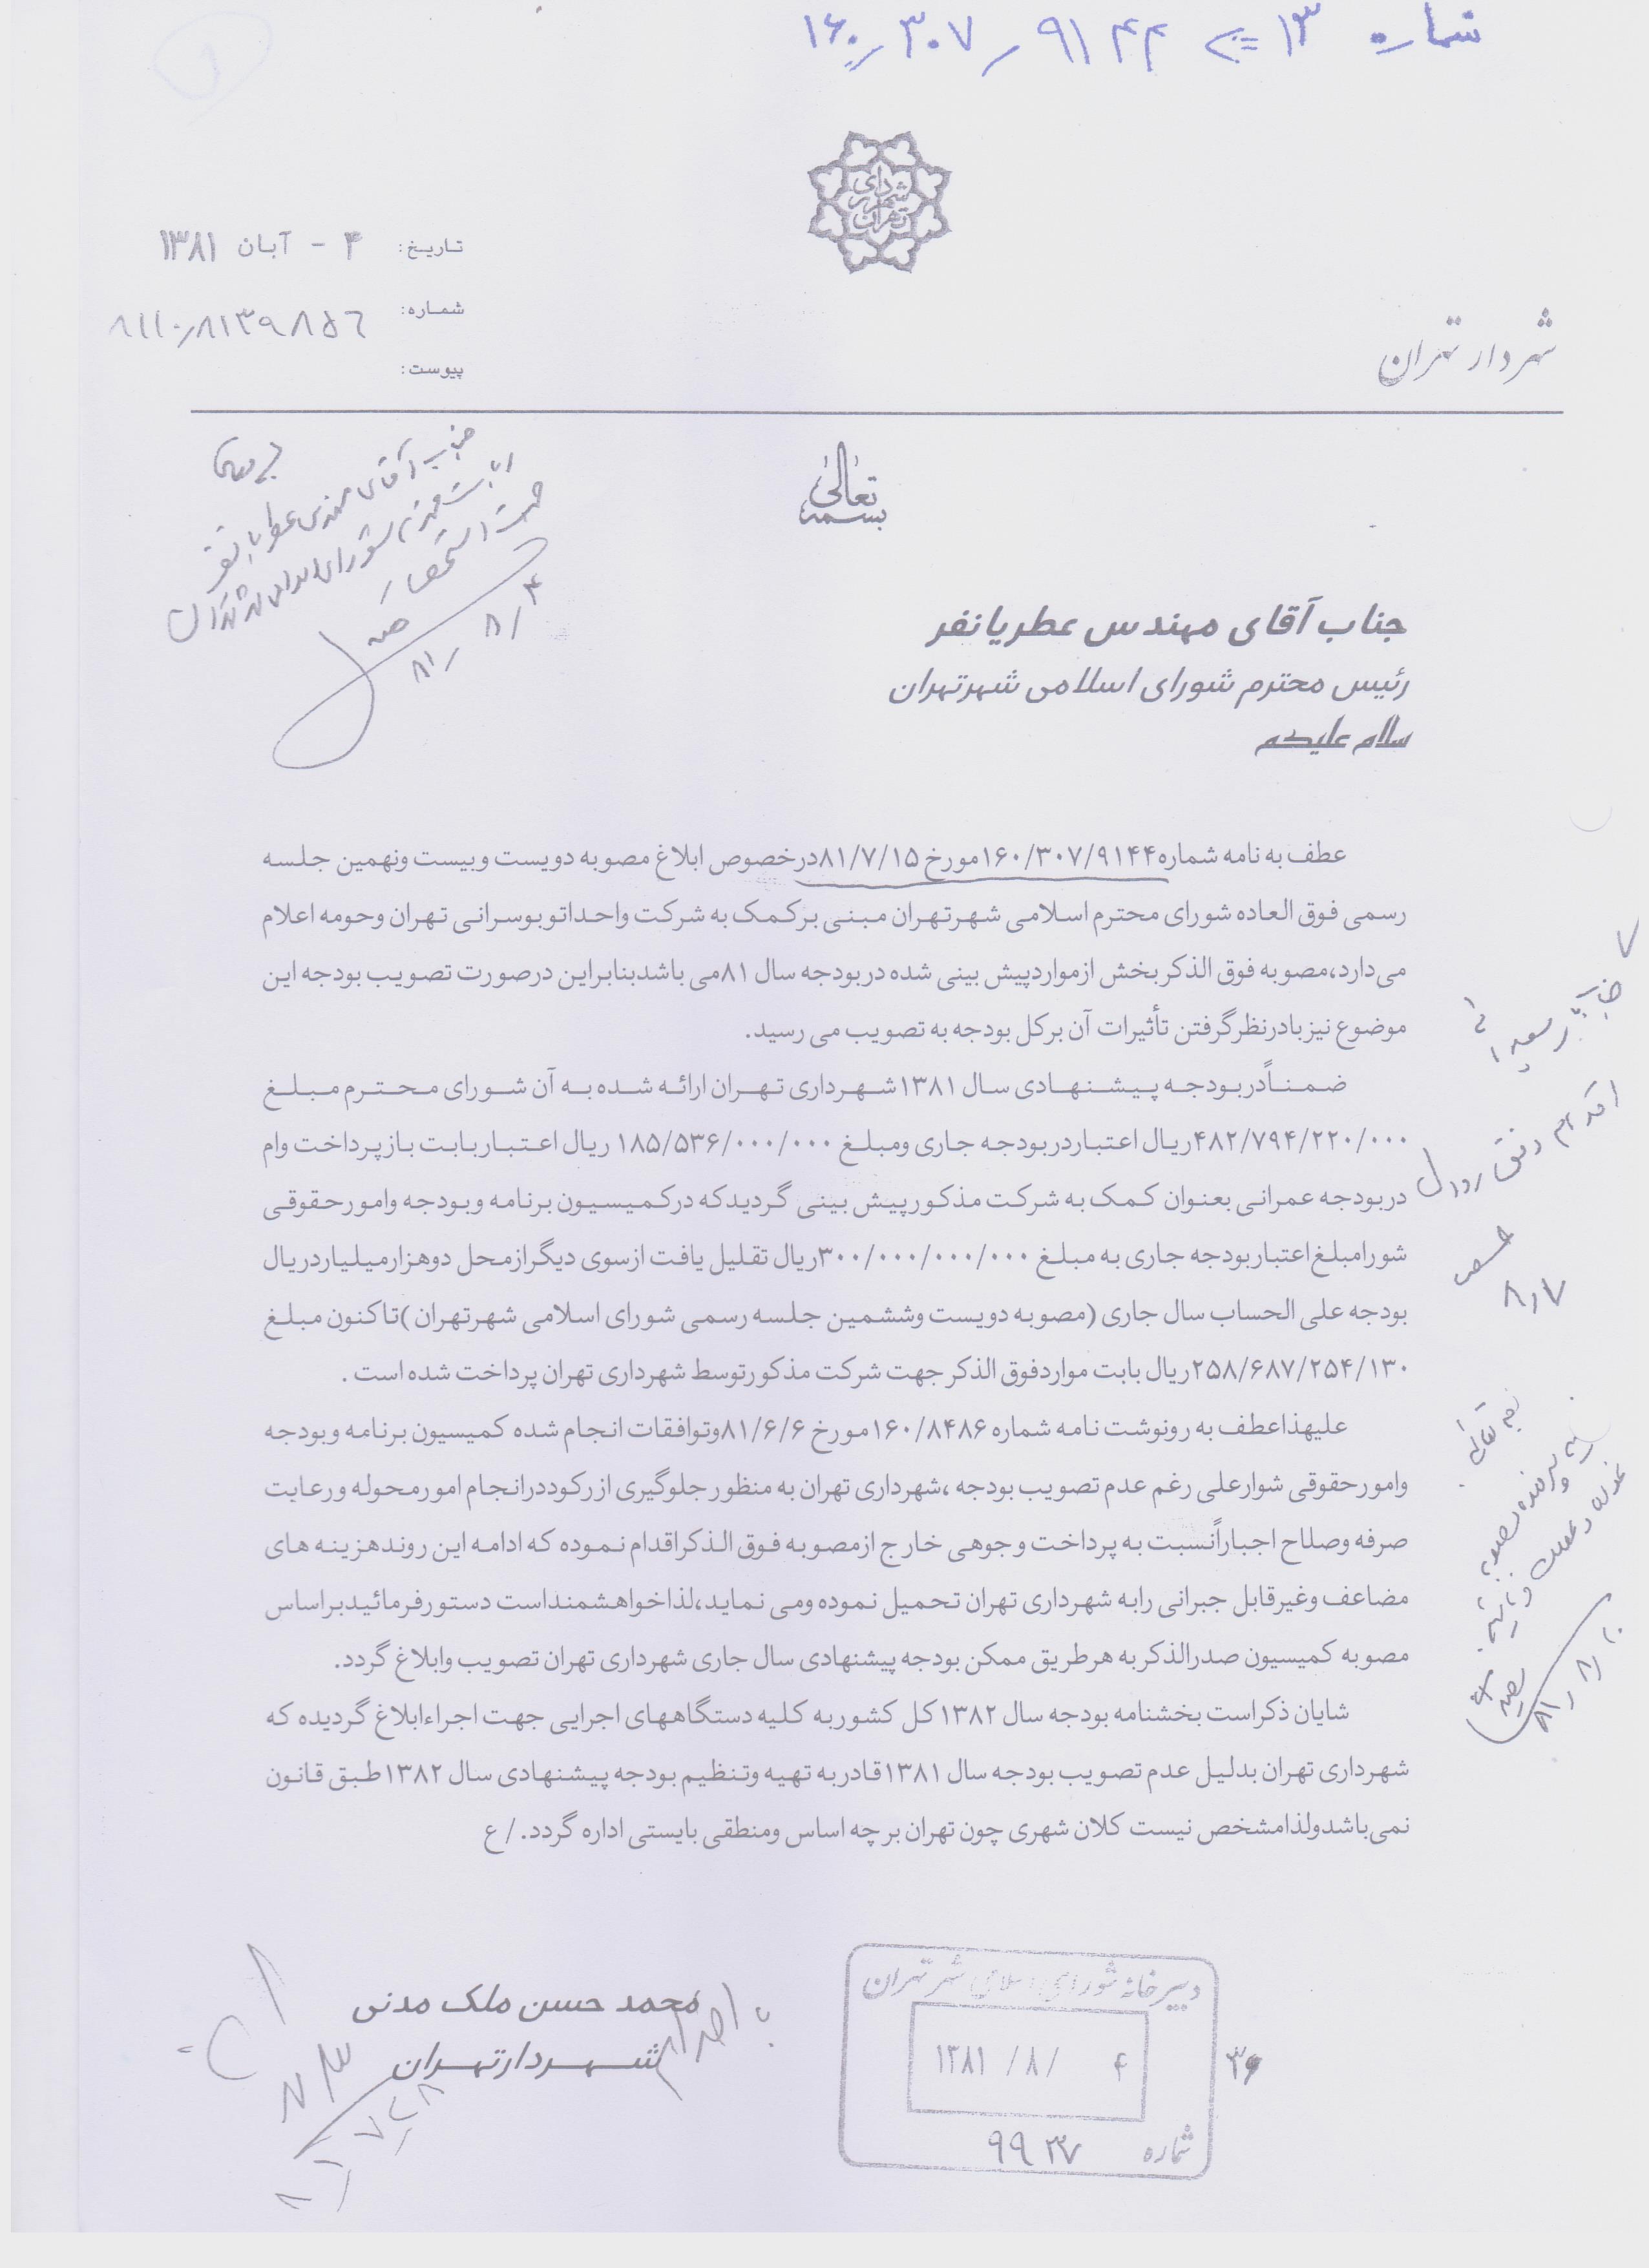 شماره ۱۳ => ۱۶۰/۳۰۷/۹۱۴۴
شهرداری تهران
تاریخ: ۴ - آبان ۱۳۸۱
شماره: ۸۱۱۰/۸۱۳۹۸۵۶
پیوست:
شهردار تهران
بسمه تعالی
جناب آقای مهندس عطریانفر
جناب آقای مهندس عطریانفر
رئیس محترم شورای اسلامی شهرتهران
سلام علیکم
جهت استحضار
۸۱/۸/۴
عطف به نامه شماره۱۶۰/۳۰۷/۹۱۴۴مورخ ۸۱/۷/۱۵درخصوص ابلاغ مصوبه دویست وبیست ونهمین جلسه
رسمی فوق العاده شورای محترم اسلامی شهرتهران مبنی برکمک به شرکت واحداتوبوسرانی تهران وحومه اعلام
می‌دارد،مصوبه فوق الذکربخش ازمواردپیش بینی شده دربودجه سال ۸۱می باشدبنابراین درصورت تصویب بودجه این
موضوع نیزبادرنظرگرفتن تأثیرات آن برکل بودجه به تصویب می رسید.
ضمناًدربودجه پیشنهادی سال ۱۳۸۱شهرداری تهران ارائه شده به آن شورای محترم مبلغ
۴۸۲/۷۹۴/۲۲۰/۰۰۰ریال اعتباردربودجه جاری ومبلغ ۱۸۵/۵۳۶/۰۰۰/۰۰۰ ریال اعتباربابت بازپرداخت وام
دربودجه عمرانی بعنوان کمک به شرکت مذکورپیش بینی گردیدکه درکمیسیون برنامه وبودجه وامورحقوقی
شورامبلغ‌اعتباربودجه جاری به مبلغ ۳۰۰/۰۰۰/۰۰۰/۰۰۰ریال تقلیل یافت ازسوی دیگرازمحل دوهزارمیلیاردریال
بودجه علی الحساب سال جاری (مصوبه دویست وششمین جلسه رسمی شورای اسلامی شهرتهران )تاکنون مبلغ
۲۵۸/۶۸۷/۲۵۴/۱۳۰ریال بابت مواردفوق الذکر جهت شرکت مذکورتوسط شهرداری تهران پرداخت شده است .
علیهذاعطف به رونوشت نامه شماره ۱۶۰/۸۴۸۶مورخ ۸۱/۶/۶وتوافقات انجام شده کمیسیون برنامه وبودجه
وامورحقوقی شوارعلی رغم عدم تصویب بودجه ،شهرداری تهران به منظورجلوگیری ازرکوددرانجام امورمحوله ورعایت
صرفه وصلاح اجباراًنسبت به پرداخت وجوهی خارج ازمصوبه فوق الذکراقدام نموده که ادامه این روندهزینه های
مضاعف وغیرقابل جبرانی رابه شهرداری تهران تحمیل نموده ومی نماید،لذاخواهشمنداست دستورفرمائیدبراساس
مصوبه کمیسیون صدرالذکربه هرطریق ممکن بودجه پیشنهادی سال جاری شهرداری تهران تصویب وابلاغ گردد.
شایان ذکراست بخشنامه بودجه سال ۱۳۸۲کل کشوربه کلیه دستگاههای اجرایی جهت اجراءابلاغ گردیده که
شهرداری تهران بدلیل عدم تصویب بودجه سال ۱۳۸۱قادربه تهیه وتنظیم بودجه پیشنهادی سال ۱۳۸۲طبق قانون
نمی‌باشدولذامشخص نیست کلان شهری چون تهران بر چه اساس ومنطقی بایستی اداره گردد. / ع
۸/۷
۸۱/۸/۱۰
با احترام
محمد حسن ملک مدنی
شهردارتهران
دبیرخانه شورای اسلامی شهر تهران
۱۳۸۱ /۸/ ۴
شماره ۹۹۳۷
۳۶